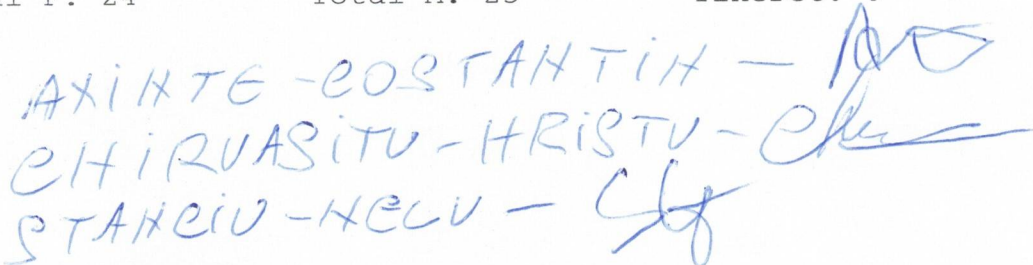 Total M: 23
AXiNTE - COSTANTiN -
CHiRVASiTU - HRiSTU -
STANCiU - NELU -